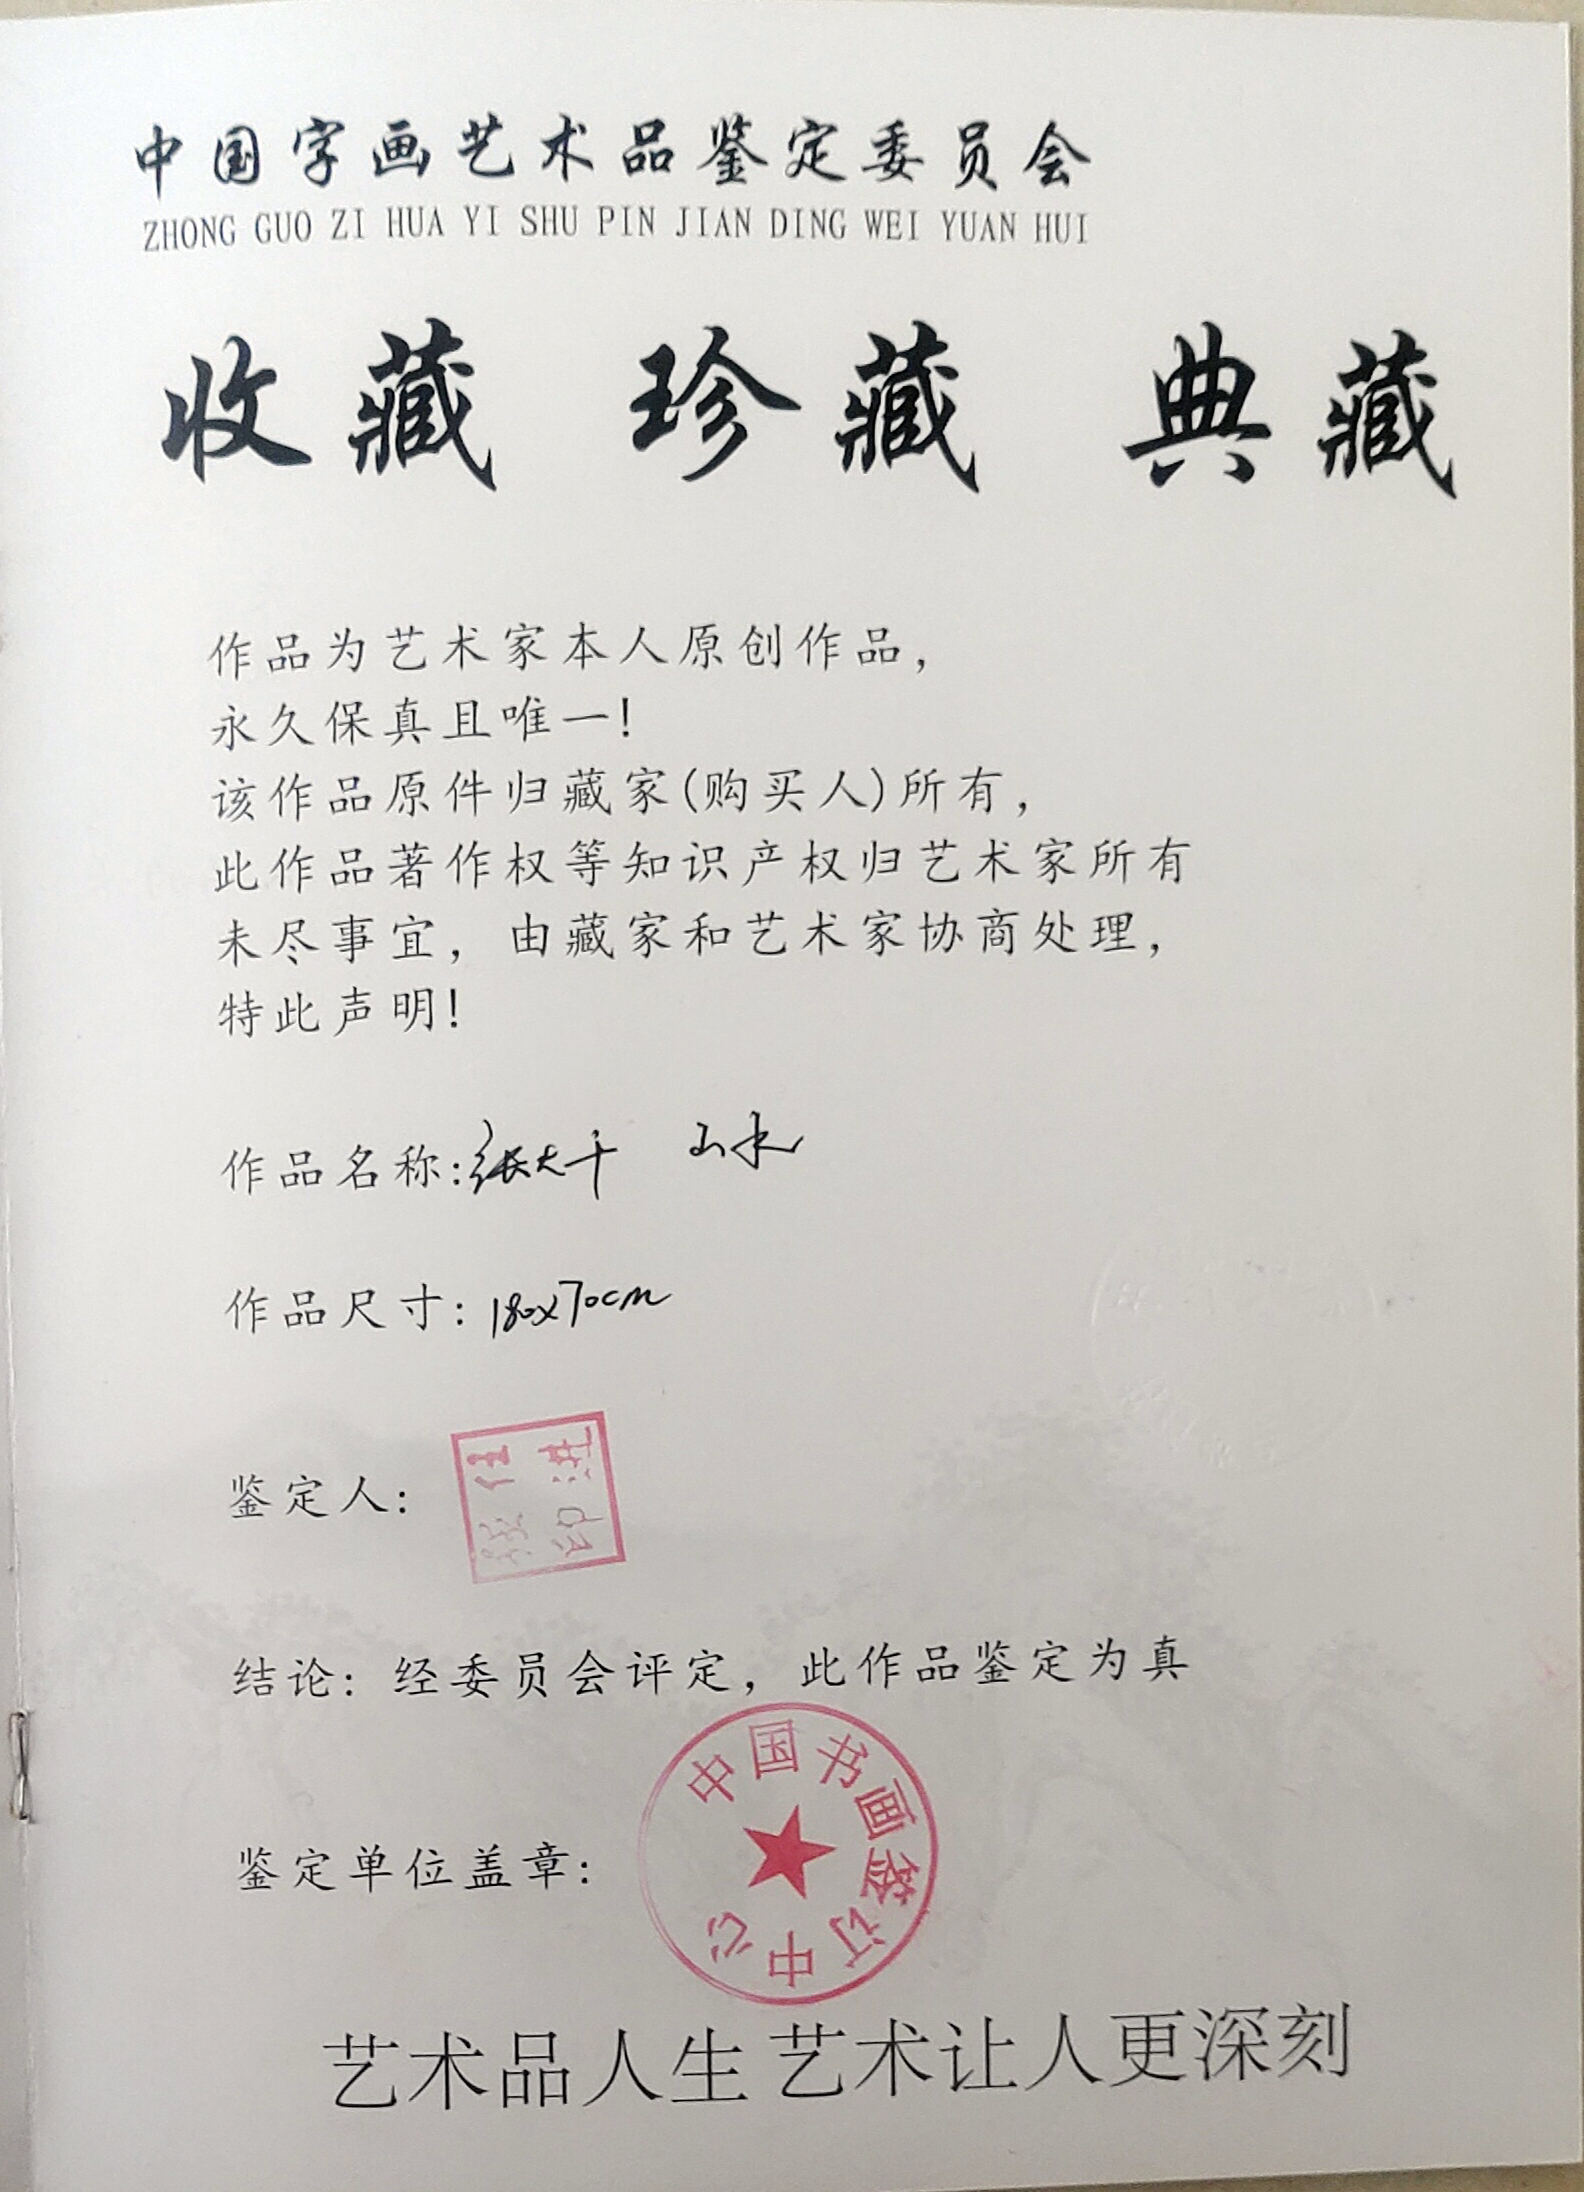 中国字画艺术品鉴定委员会
ZHONG GUO ZI HUA YI SHU PIN JIAN DING WEI YUAN HUI
收藏 珍藏 典藏
作品为艺术家本人原创作品，
永久保真且唯一！
该作品原件归藏家(购买人)所有，
此作品著作权等知识产权归艺术家所有
未尽事宜，由藏家和艺术家协商处理，
特此声明！
作品名称：张大千 山水
作品尺寸：180x70cm
鉴定人：
结论：经委员会评定，此作品鉴定为真
鉴定单位盖章：
中国书画签订中心
艺术品人生 艺术让人更深刻